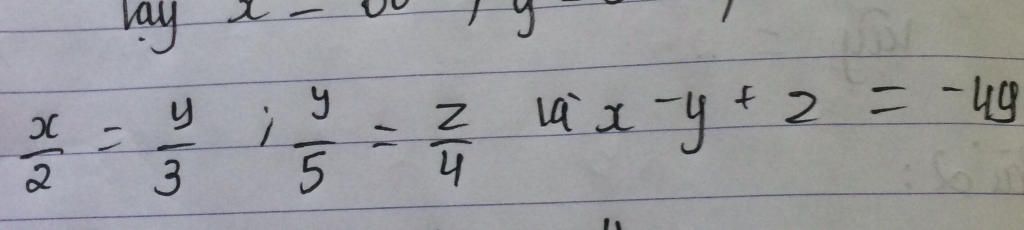 Vậy x = 
x/2 = y/3 ; y/5 = z/4 và x - y + 2 = -49